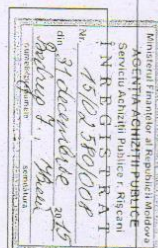 Ministerul Finanţelor al Republicii Moldova
AGENŢIA ACHIZIŢII PUBLICE
Serviciu Achiziţii Publice r. Rîşcani
ÎNREGISTRAT
Nr. 15/02380/008
din 31 decembrie 2015
semnătura